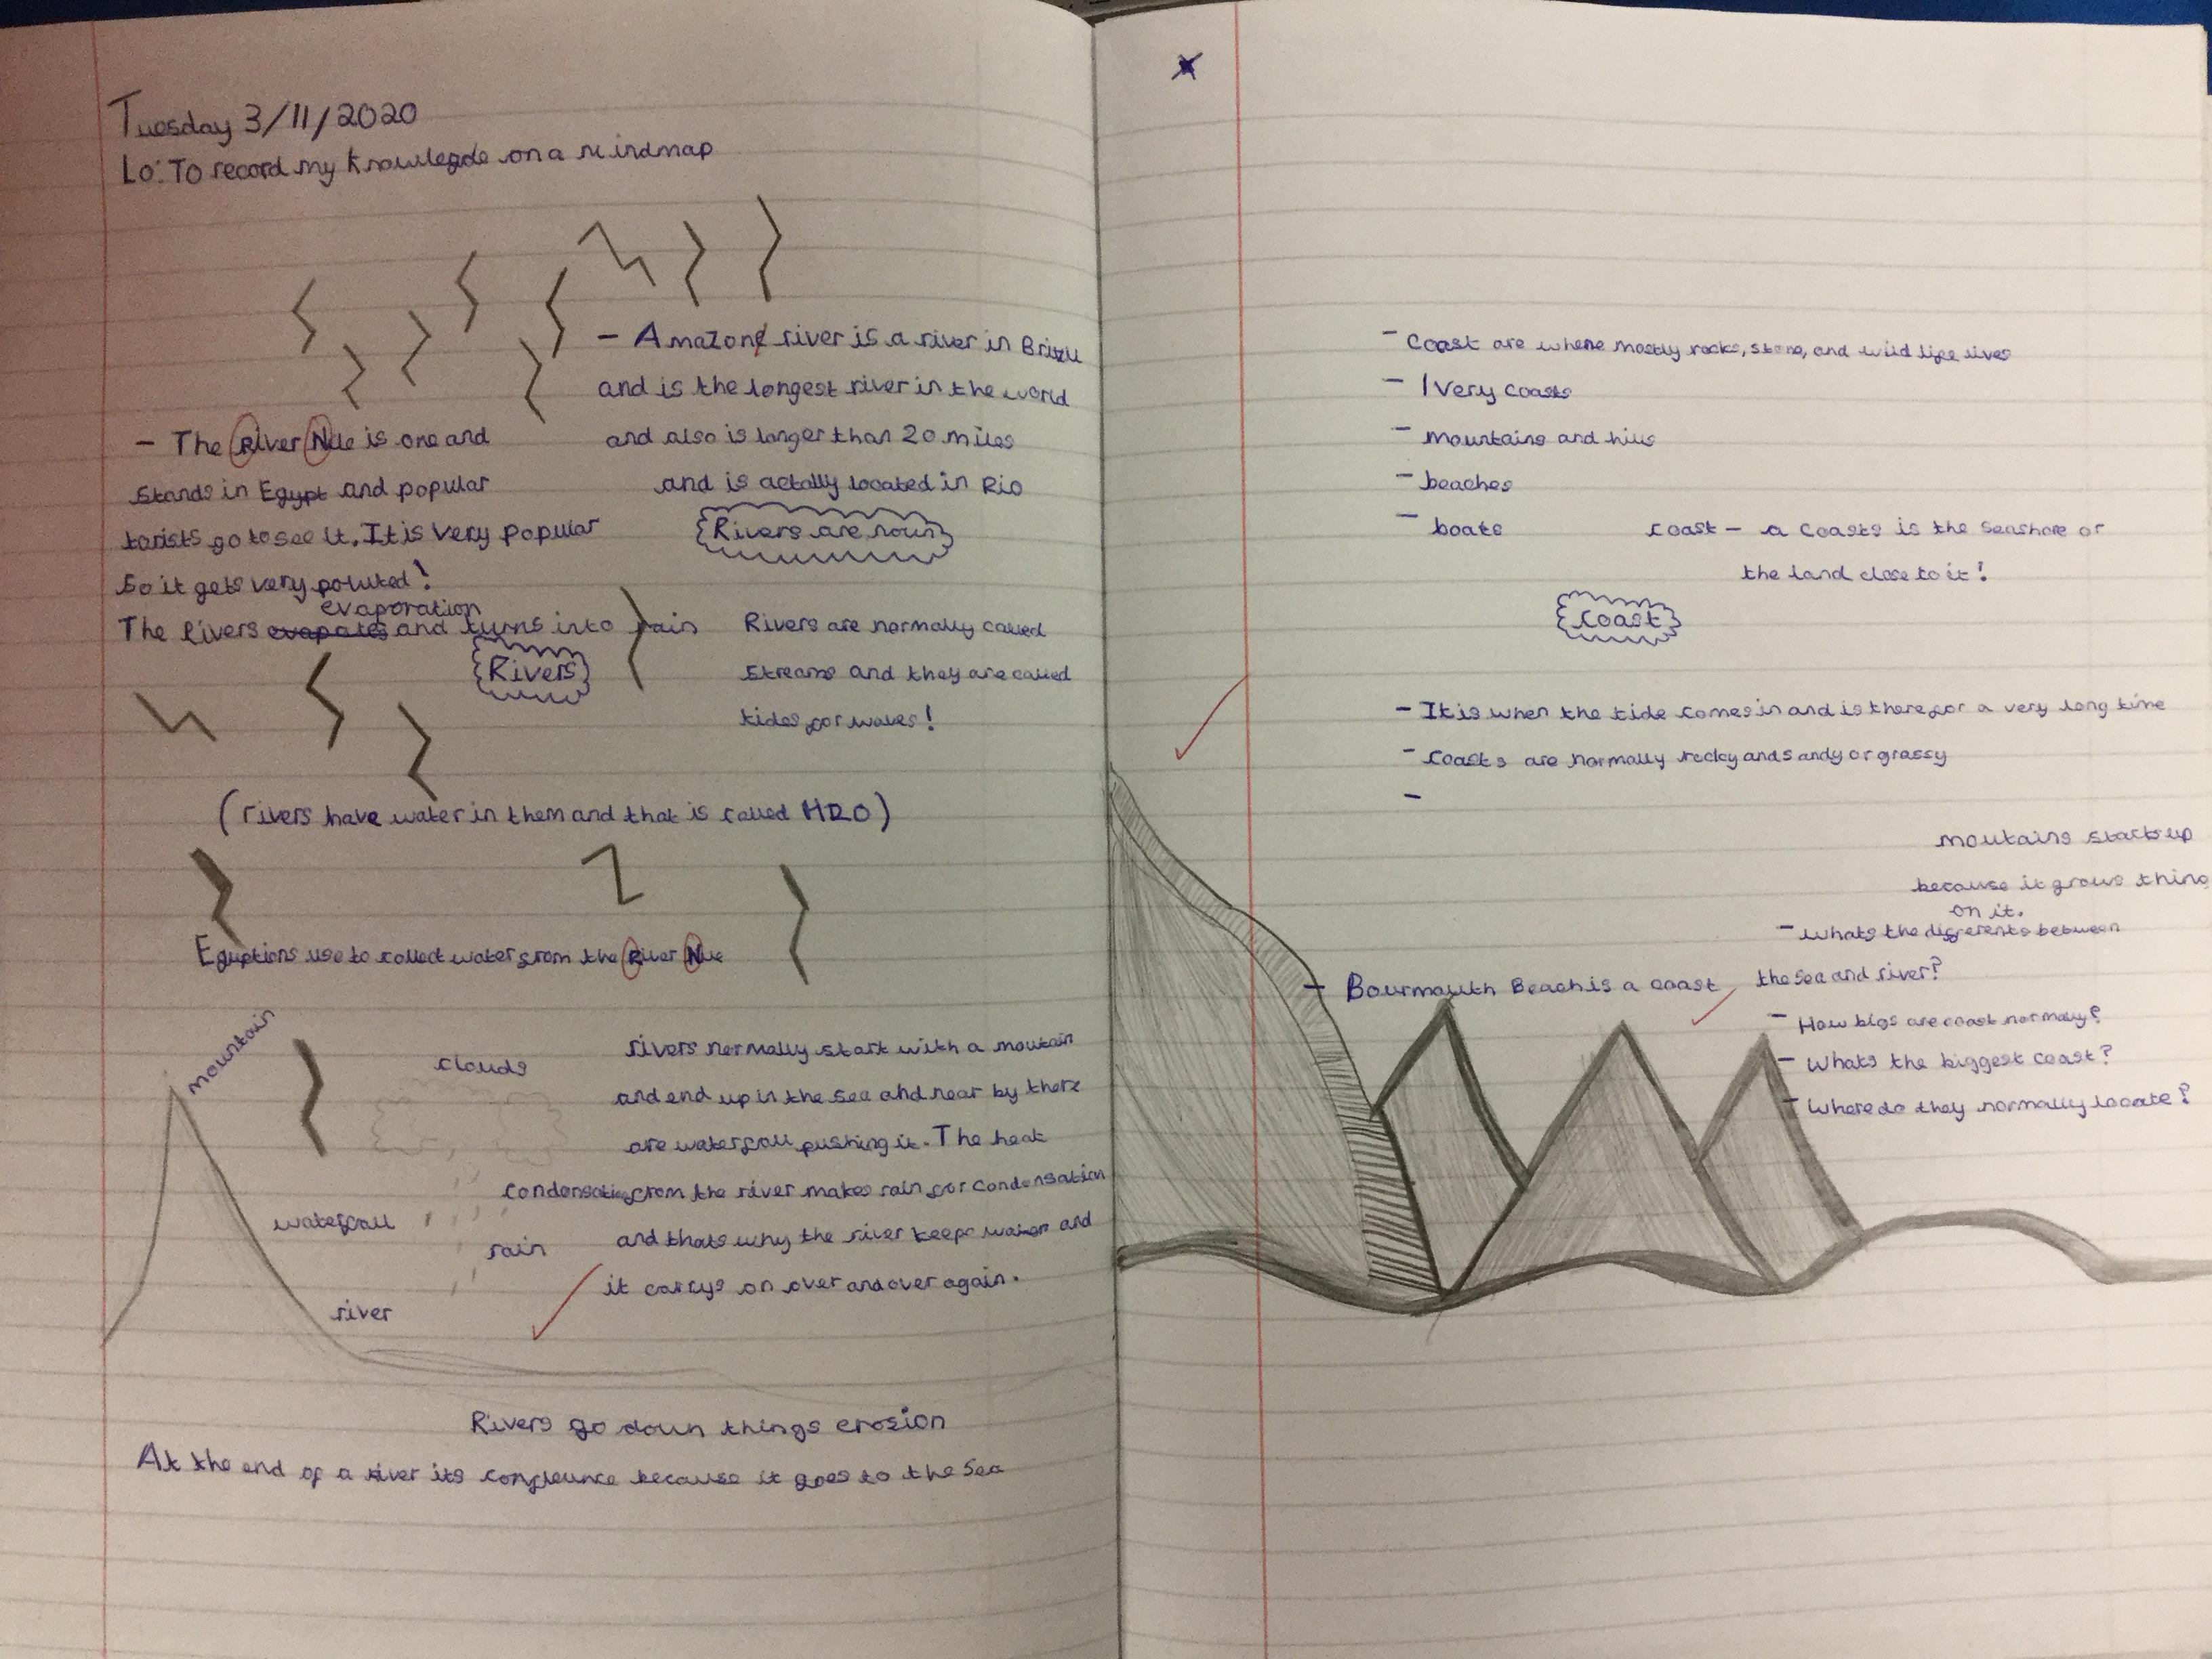 Tuesday 3/11/2020
Lo: To record my knowlegde on a mindmap
- Amazon river is a river in
and is the longest river in the world
and also is longer than 20 miles
and is actally located in Rio
- The River Nile is one and
stands in Egypt and popular
torists go to see it. It is very popular
so it gets very poluted!
evaporation
The Rivers evapates and turns into rain
Rivers are noun
Rivers
Rivers are normally called
streams and they are called
tides for waves!
(rivers have water in them and that is called H2O)
Eguptions use to collect water from the River Nile
mountain
clouds
waterfall
rain
river
rivers normally start with a moutain
and end up in the sea and near by there
are waterfall pushing it. The heat
condensation from the river makes rain for condensation
and thats why the river keeps water and
it carrys on over and over again.
Rivers go down things erosion
At the end of a river its confleunce because it goes to the sea
- Coast are where mostly rocks, stone, and wild life lives
- Ivery coasts
- mountains and hills
- beaches
- boats
coast - a coasts is the seashore or
the land close to it!
coast
- It is when the tide comes in and is there for a very long time
- Coasts are normally rocky and sandy or grassy
-
moutains starts up
because it grows thing
on it.
- Bourmouth Beach is a coast
- whats the differents between
the sea and river?
- How bigs are coast normaly?
- Whats the biggest coast?
- Where do they normally locate?